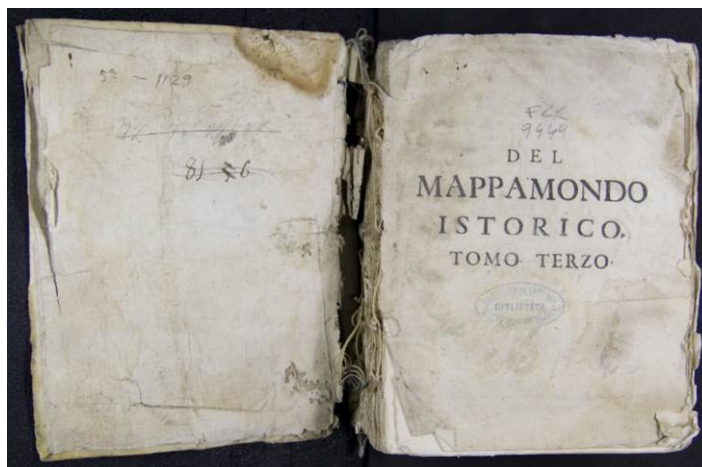 5a - 1129
81 - 6
FCL
9449
DEL
MAPPAMONDO
ISTORICO.
TOMO TERZO.
BIBLIOTECA